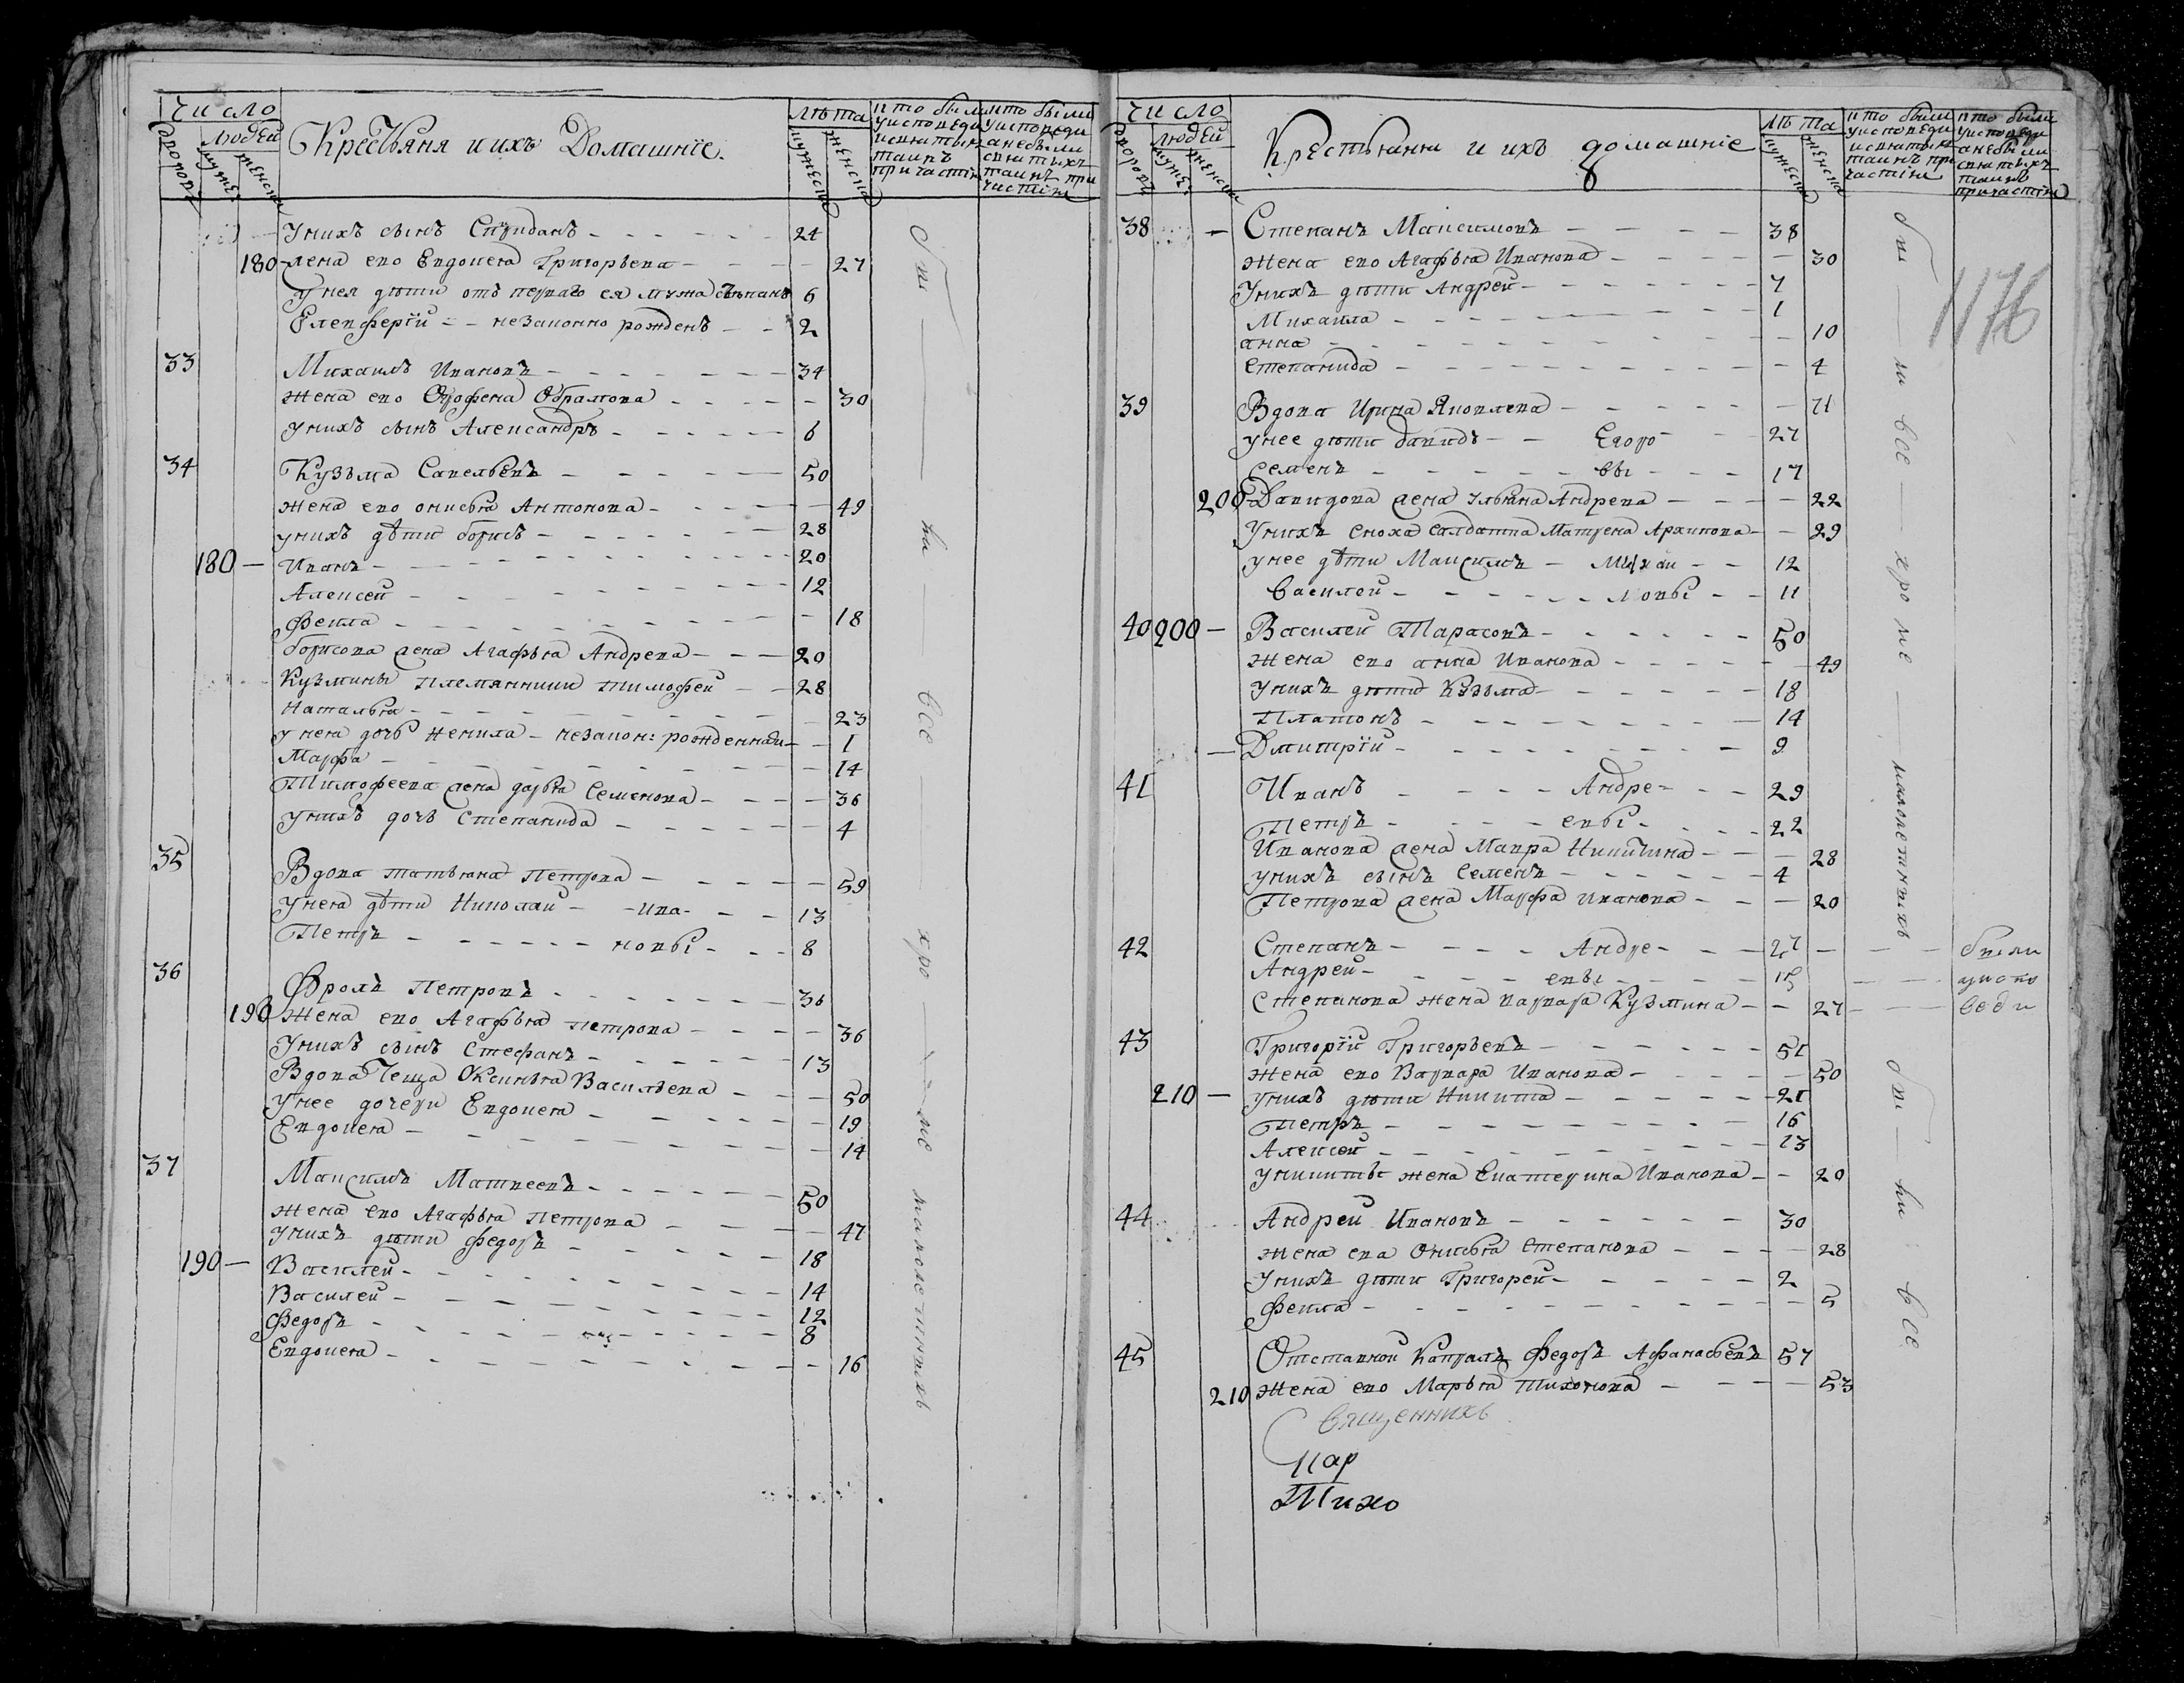 число
людей
дворовъ
мужес
женска
Крестьяня и ихъ Домашнiе.
лѣта
мужеска
женска
кто были у исповеди и святыхъ таинъ причастiя
кто были у исповеди а не были святыхъ таинъ причастiя
У нихъ сынъ Спиридонъ 24
180 жена ево Евдокея Григорьева 27
У нея дѣти отъ перваго ея мужа Степанъ 6
Елевферiй незаконно рожденъ 2
33 Михаилъ Ивановъ 34
жена ево Офрофена Обрамова 30
У нихъ сынъ Александръ 6
34 Кузьма Савельевъ 50
жена ево онисья Антонова 49
у нихъ дѣти борисъ 28
180 Иванъ 20
Алексей 12
Фекла 18
борисова жена Агафья Андрева 20
Кузмины племянники тимофей 28
Наталья 23
у нея дочь Ненила незакон: рожденная 1
Марфа 14
Тимофеева жена дарья Семенова 36
У нихъ дочь Степанида 4
35 Вдова татьяна Петрова 59
У нея дѣти Николай Ива- 13
Петръ новы 8
36 Фролъ Петровъ 36
190 жена ево Агафья петрова 36
У нихъ сынъ Стефанъ 13
Вдова Теща Оксинья Васильева 50
У нее дочери Евдокея 19
Евдокея 14
37 Максимъ Матвеевъ 50
жена ево Агафья петрова 47
У нихъ дѣти Федоръ 18
190 Василей 14
Василей 12
Федоръ 8
Евдокея 16
бы ли все кро ме малолетныхъ
число
людей
дворовъ
мужес
женска
Крестьяня и ихъ домашнiе
лѣта
мужеска
женска
кто были у исповеди и святыхъ таинъ причастiя
кто были у исповеди а не были святыхъ таинъ причастiя
1176
38 Степанъ Максимовъ 38
жена ево Агафья Иванова 30
У нихъ дѣти Андрей 7
Михаила 1
анна 10
степанида 4
39 Вдова Ирина Яковлева 71
у нее дѣти давидъ Егоро 27
семенъ вы 17
200 Давидова жена Ульяна Андрева 22
У нихъ сноха салдатка Матрена Архипова 29
у нее дѣти Максимъ Михаи 12
Василей ловы 11
40 200 Василей Тарасовъ 50
жена ево анна Иванова 49
У нихъ дѣти Кузьма 18
Платонъ 14
Дмитрiй 9
41 Иванъ Андре- 29
Петръ евы 22
Иванова жена Мавра Никитина 28
у нихъ сынъ Семенъ 4
Петрова жена Марфа иванова 20
42 Степанъ Андре- 27 были
Андрей евы 15 у испо
Степанова жена варвара Кузмина 27 веди
43 Григорiй Григорьевъ 51
жена ево Варвара Иванова 50
210 у нихъ дѣти Никита 21
Петръ 16
Алексей 13
у никиты жена Екатерина Иванова 20
44 Андрей Ивановъ 30
жена ева Онисья Степанова 28
У нихъ дѣти Григорей 2
фекла 5
45 Отставной Капралъ Федоръ Афанасьевъ 57
210 жена ево Марья Тихонова 53
бы ли все кро ме малолетныхъ
бы ли все
Священникъ
Тихо